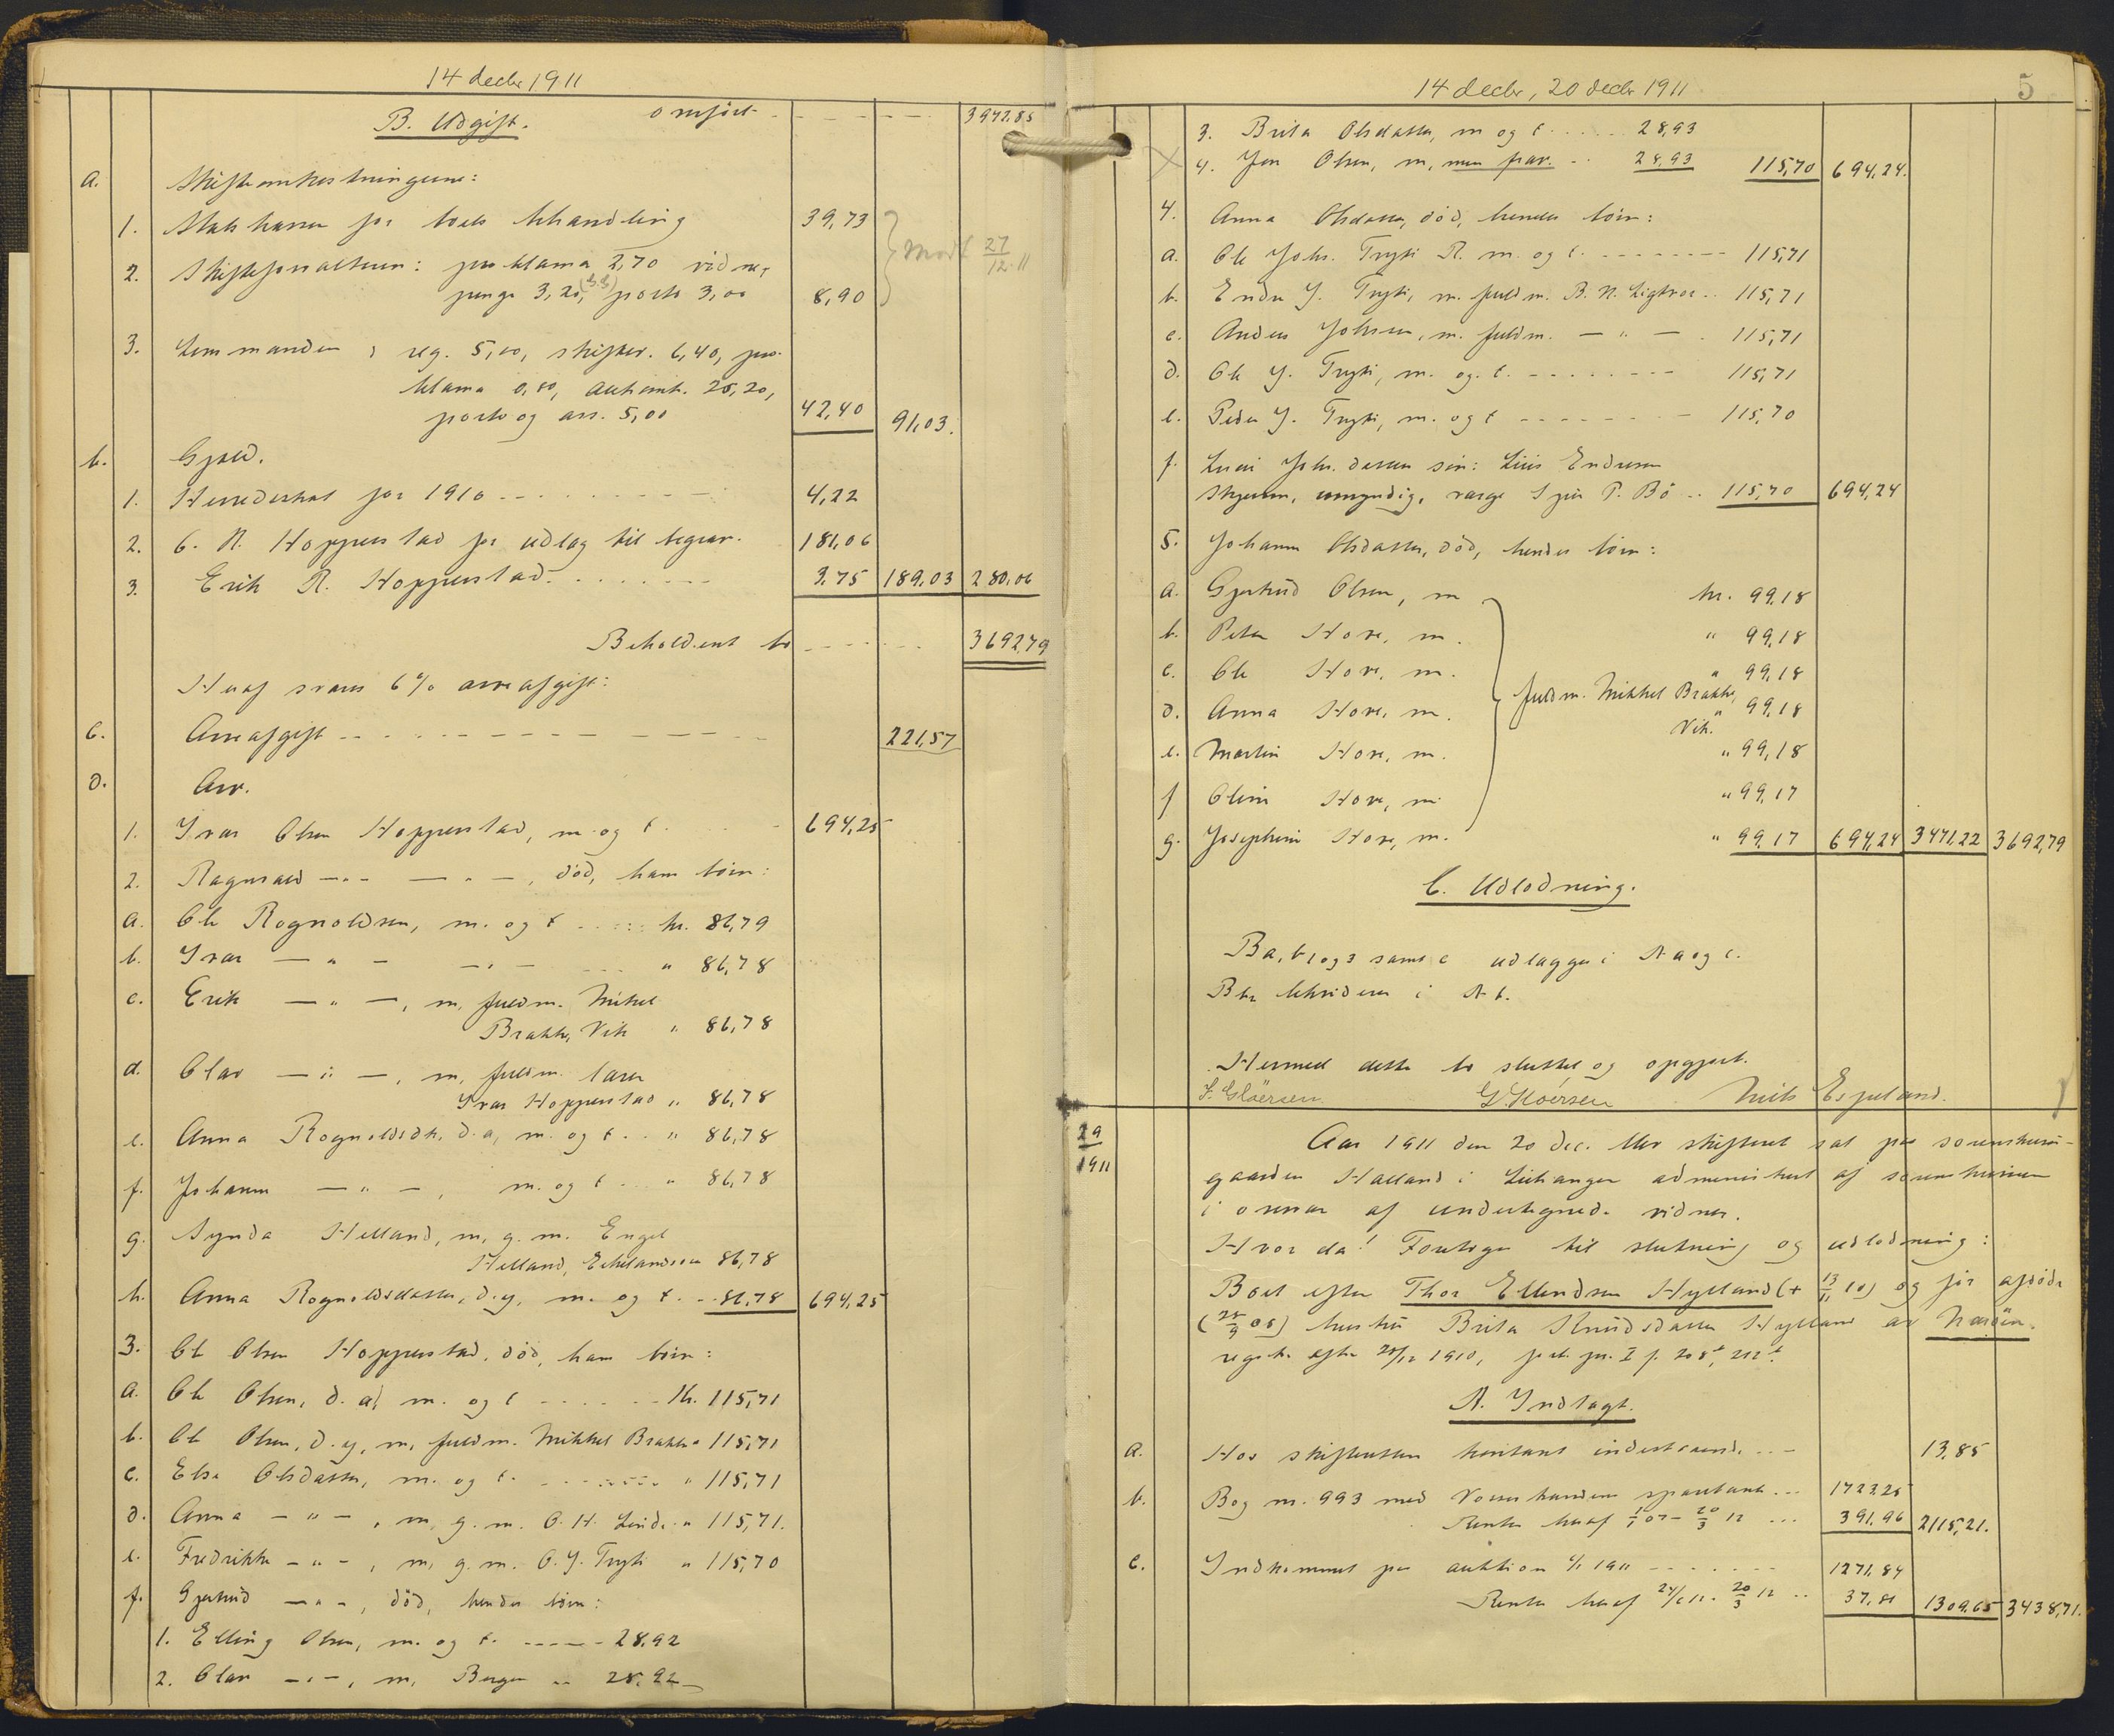 14 decbr 1911
B. Udgift. omført 3972.85
a. Skifteomkostningerne:
1. Statskassen for boets behandling 39,73
2. Skifteforvalteren: proklama 2,70 vidne-
penge 3,20, porto 3,00 8,90
Modt 27/12.11
3. Lensmanden: reg. 5,00, skiftev. 6,40, pro-
klama 0,80, auk.omk. 25,20,
porto og arr. 5,00 42,40 91,03.
b. Gjæld.
1. Herredsskat for 1910 4,22
2. O. R. Hopperstad for udlæg til begrav. 181,06
3. Erik R. Hopperstad 3.75 189,03 280,06
Beholdent bo 3692,79
Heraf svares 6% arveafgift:
c. Arveafgift 221,57
d. Arv.
1. Ivar Olsen Hopperstad, m. og t. 694,25
2. Ragnvald —"— —"—, død, hans børn:
a. Ole Rognaldsen, m. og t. kr. 86,79
b. Ivar —"— —"— " 86,78
c. Erik —"—, m, fuldm. Mikkel
Brække, Vik " 86,78
d. Olav —"—, m, fuldm. lærer
Ivar Hopperstad " 86,78
e. Anna Rognaldsdtr, d.æ, m. og t. " 86,78
f. Johanna —"—, m. og t. " 86,78
g. Synva Helland, m, g. m. Engel
Helland, 86,78
h. Anna Rognaldsdatter, d.y, m. og t. 86,78 694,25
3. Ole Olsen Hopperstad, død, hans børn:
a. Ole Olsen, d. æ, m. og t kr. 115,71
b. Ole Olsen, d.y, m, fuldm. Mikkel Brække " 115,71
c. Elsa Olsdatter, m. og t. " 115,71
d. Anna —"—, m, g.m. O. H. Linde " 115,71.
e. Fredrikke —"—, m, g.m. O. J. Tryti " 115,70
f. Gjertrud —"—, død, hendes børn:
1. Elling Olsen, m. og t. 28,92
2. Olav —"—, m, Bergen 28,92
14 decbr, 20 decbr 1911
5
3. Brita Olsdatter, m og t 28,93
4. Jon Olsen, m, men frav. 28,93 115,70 694,24.
4. Anna Olsdatter, død, hendes børn:
a. Ole Johs. Tryti R. m. og t. 115,71
b. Endre J. Tryti, m. fuldm. B. N. Ligtvor 115,71
c. Anders Johsen, m. fuldm. —"— 115,71
d. Ole J. Tryti, m. og. t. 115,71
e. Peder J. Tryti, m. og t 115,70
f. Johs.datters søn: Endresen
umyndig, værge P. Bø 115,70 694,24
5. Johanna Olsdatter, død, hendes børn:
a. Gjertrud Olsen, m kr. 99,18
b. Peter Hove, m. " 99,18
c. Ole Hove, m. " 99,18
fuldm. Mikkel Brække,
d. Anna Hove, m. " 99,18
Vik.
e. Martin Hove, m. " 99,18
f Oline Hove, m " 99,17
g. Josephine Hove, m. " 99,17 694,24 3471,22 3692,79
C. Udlodning.
Ba, b1og3 samt c udlægges i A a og c.
Bb2 bekvideres i A b.
Hermed dette bo sluttet og opgjort.
S. Gløersen. G. Gløersen Nils Espeland.
29/1911
Aar 1911 den 20 dec. blev skifteret sat paa sorenskriver-
gaarden Halland i Leikanger administrert af sorenskriveren
i overvær af undertegnede vidner.
Hvor da! Foretoges til slutning og udlodning:
Boet efter Thor Ellendsen Hylland (+ 13/11 10) og før afdøde
(25/9 05) hustru Brita Knudsdatter Hylland av Nærøen.
registr. efter 20/12 1910, forh. pr. I f. 208b, 212b.
A. Indtægt.
a. Hos skifteretten kontant indestaaende 13,85
b. Bog nr. 993 med Vossestrandens sparebank 1723.25
Renter heraf 1/1 07 - 20/3 12 391.96 2115,21.
c. Indkommet paa auktion 1/1 1911 1271,84
Renter heraf 24/6 11 - 20/3 12 37,81 1309,65 3438,71.